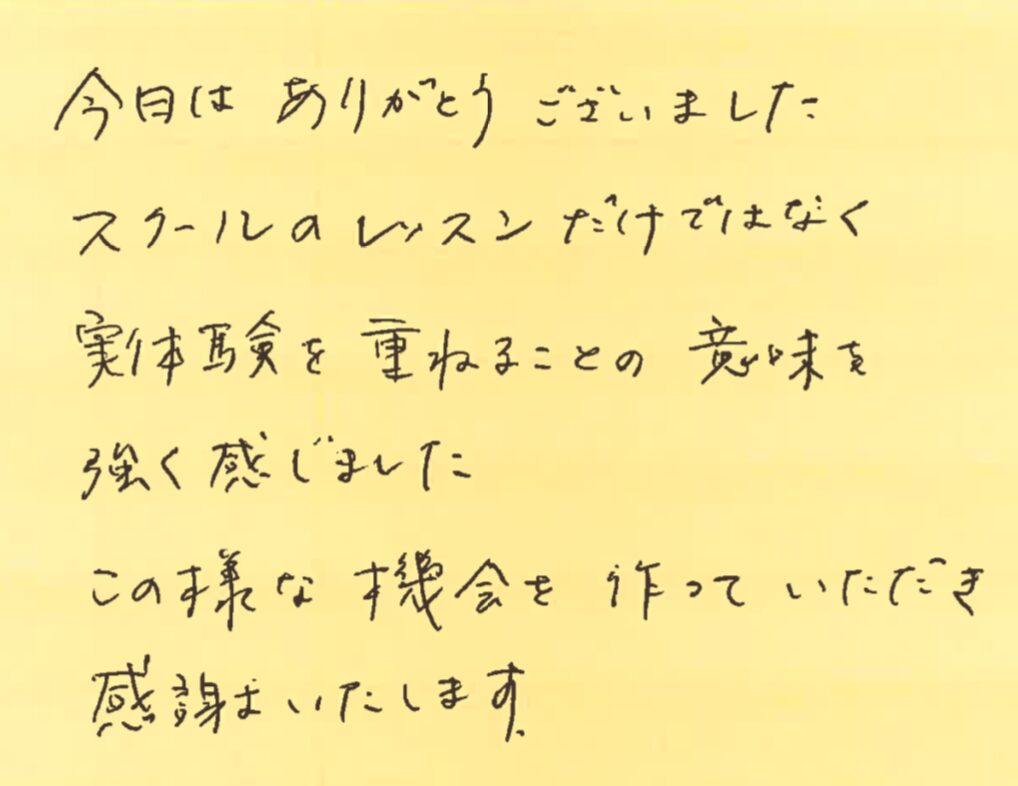 今日は ありがとう ございました
スクールの レッスン だけではなく
実体験を 重ねることの 意味を
強く 感じました
この様な 機会を 作って いただき
感謝いたします。